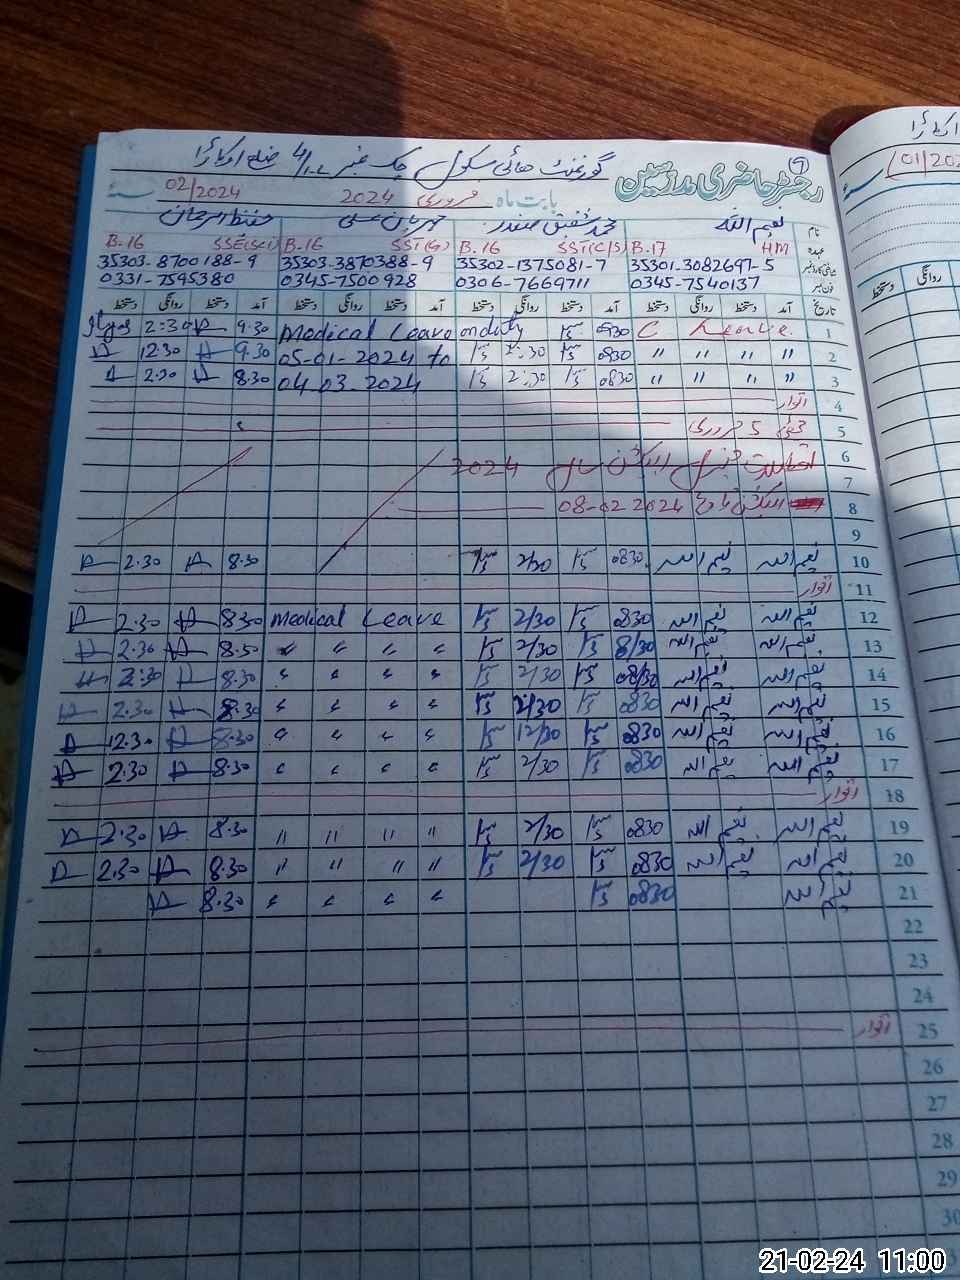 گورنمنٹ ہائی سکول چک نمبر 4/1.L ضلع اوکاڑا
رجسٹر حاضری مدرسین بابت ماہ فروری 2024 02/2024
نام نعیم اللہ محمد شفیق مہربان علی حفیظ الرحمان
عہدہ HM B.17 SST(C/S) B.16 SST(G) B.16 SSE(Sci) B.16
35301-3082697-5 35302-1375081-7 35303-3870388-9 35303-8700188-9
فون نمبر 0345-7540137 0306-7669711 0345-7500928 0331-7595380
تاریخ آمد دستخط روانگی دستخط آمد دستخط روانگی دستخط آمد دستخط روانگی دستخط آمد دستخط روانگی دستخط
1 C Leave. 0930 onduty Medical Leave 9.30 2:30
2 " " " " 0830 2:30 05-01-2024 to 9.30 12.30
3 " " " " 0830 2:30 04-03-2024 8.30 2.30
4 اتوار
5 چھٹی 5 فروری
6 جنرل الیکشن سال 2024
7
8 الیکشن تاریخ 08-02-2024
9
10 نعیم اللہ نعیم اللہ 0830 2/30 8.30 2.30
11 اتوار
12 نعیم اللہ نعیم اللہ 0830 2/30 Medical Leave 8.30 2.30
13 نعیم اللہ نعیم اللہ 8/30 2/30 " " " " 8.30 2.30
14 نعیم اللہ نعیم اللہ 08/30 2/30 " " " " 8.30 2:30
15 نعیم اللہ نعیم اللہ 0830 2/30 " " " " 8.30 2.30
16 نعیم اللہ نعیم اللہ 0830 12/30 " " " " 8.30 12.30
17 نعیم اللہ نعیم اللہ 0830 2/30 " " " " 8.30 2.30
18 اتوار
19 نعیم اللہ نعیم اللہ 0830 2/30 " " " " 8.30 2.30
20 نعیم اللہ نعیم اللہ 0830 2/30 " " " " 8.30 2.30
21 نعیم اللہ 0830 " " " " 8.30
22
23
24
25 اتوار
26
27
28
29
30
01/202
روانگی دستخط
21-02-24 11:00